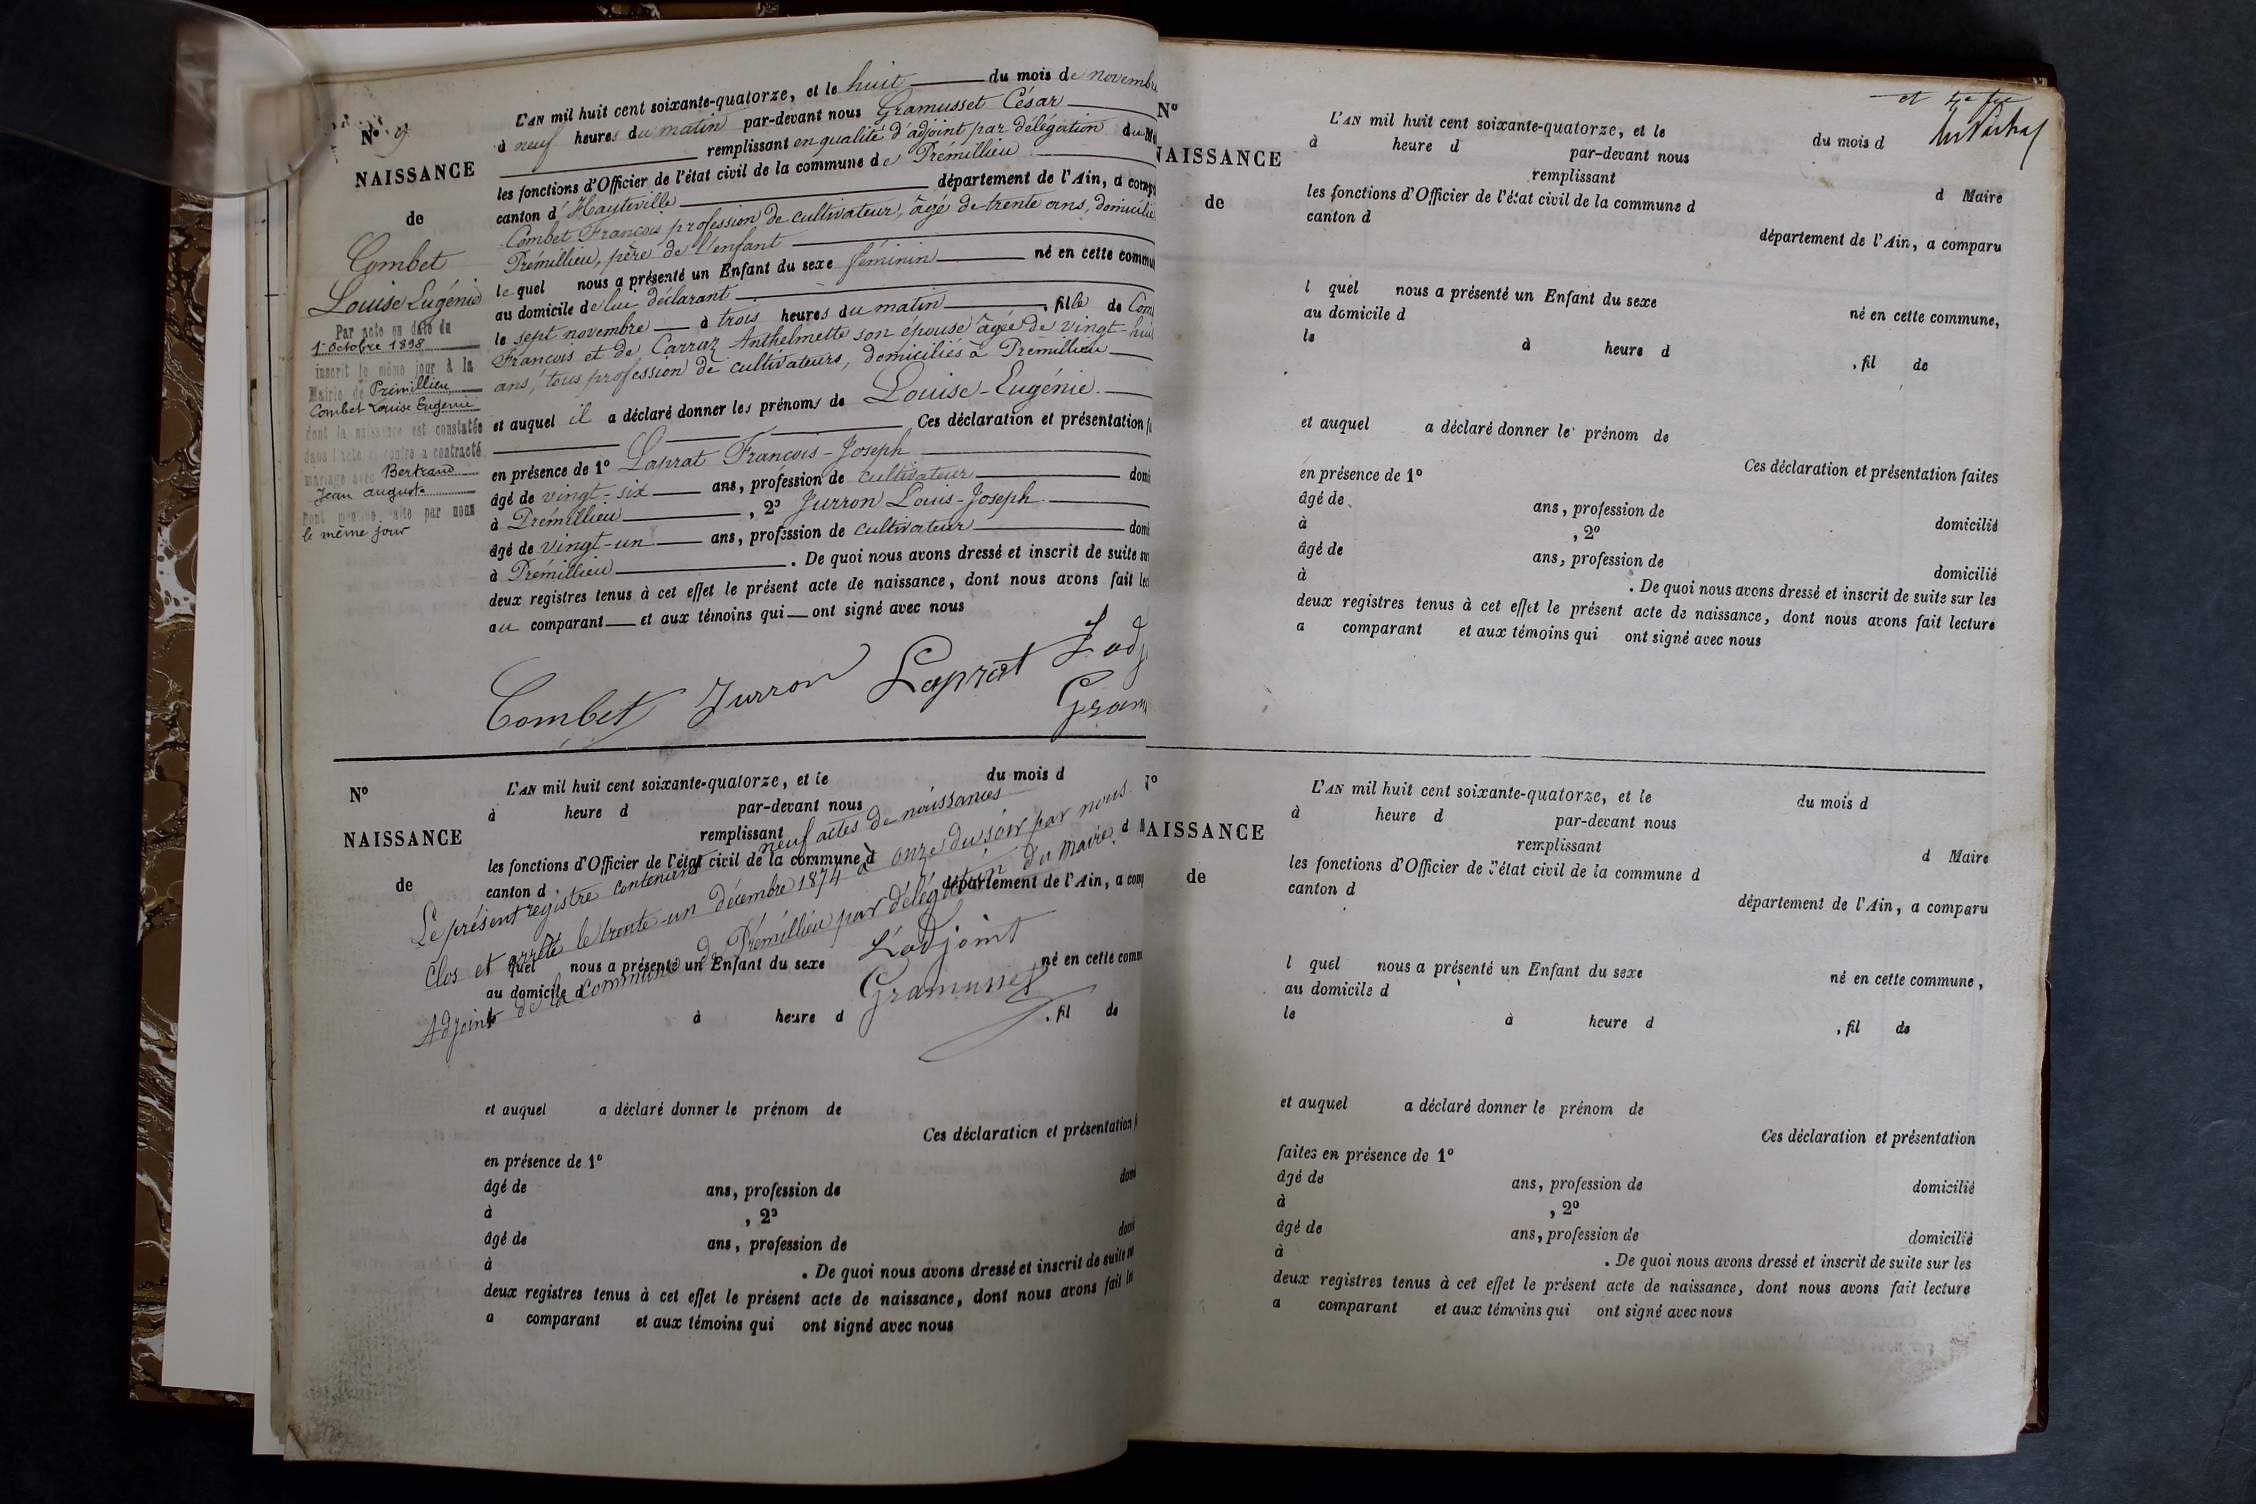 N° 9
NAISSANCE
de
Combet
Louise Eugénie
Par acte en date du
1er Octobre 1898
inscrit le même jour à la
Mairie de Prémillieu
Combet Louise Eugénie
dont la naissance est constatée
dans l'acte ci-contre a contracté
mariage avec Bertrand
Jean auguste
Dont mention faite par nous
le même jour
L'AN mil huit cent soixante-quatorze, et le huit du mois de novembre
à neuf heures du matin par-devant nous Gramusset César
remplissant en qualité d'adjoint par délégation du M
les fonctions d'Officier de l'état civil de la commune de Prémillieu
canton d'Hauteville département de l'Ain, a comp
Combet François profession de cultivateur, âgé de trente ans, domicilié
Prémillieu, père de l'enfant
lequel nous a présenté un Enfant du sexe féminin né en cette commu
au domicile de lui déclarant
le sept novembre à trois heures du matin, fille de Com
François et de Carraz Anthelmette son épouse âgée de vingt-huit
ans, tous profession de cultivateurs, domiciliés à Prémillieu
et auquel il a déclaré donner les prénoms de Louise-Eugénie.
Ces déclaration et présentation f
en présence de 1° Laprat François-Joseph
âgé de vingt-six ans, profession de cultivateur domi
à Prémillieu, 2° Jurron Louis-Joseph
âgé de vingt-un ans, profession de cultivateur domi
à Prémillieu. De quoi nous avons dressé et inscrit de suite sur
deux registres tenus à cet effet le présent acte de naissance, dont nous avons fait lec
au comparant et aux témoins qui ont signé avec nous
Combet Jurron Laprat L'adj
Gram
N°
NAISSANCE
de
L'AN mil huit cent soixante-quatorze, et le du mois d
à heure d par-devant nous
remplissant d M
les fonctions d'Officier de l'état civil de la commune d
canton d département de l'Ain, a comp
quel nous a présenté un Enfant du sexe né en cette comm
au domicile d
le à heure d , fil de
Le présent registre contenant neuf actes de naissances
clos et arrêté le trente-un décembre 1874 à onze du soir par nous
Adjoint de la commune de Prémillieu par délégation du Maire.
L'adjoint
Gramusset
et auquel a déclaré donner le prénom de
Ces déclaration et présentation f
en présence de 1°
âgé de ans, profession de domi
à , 2°
âgé de ans, profession de domi
à . De quoi nous avons dressé et inscrit de suite sur
deux registres tenus à cet effet le présent acte de naissance, dont nous avons fait lec
a comparant et aux témoins qui ont signé avec nous
N°
NAISSANCE
de
L'AN mil huit cent soixante-quatorze, et le du mois d
à heure d par-devant nous
remplissant d Maire
les fonctions d'Officier de l'état civil de la commune d
canton d
département de l'Ain, a comparu
l quel nous a présenté un Enfant du sexe né en cette commune,
au domicile d
le à heure d , fil de
et auquel a déclaré donner le prénom de
Ces déclaration et présentation faites
en présence de 1°
âgé de ans, profession de domicilié
à , 2°
âgé de ans, profession de domicilié
à . De quoi nous avons dressé et inscrit de suite sur les
deux registres tenus à cet effet le présent acte de naissance, dont nous avons fait lecture
a comparant et aux témoins qui ont signé avec nous
N°
AISSANCE
de
L'AN mil huit cent soixante-quatorze, et le du mois d
à heure d par-devant nous
remplissant d Maire
les fonctions d'Officier de l'état civil de la commune d
canton d
département de l'Ain, a comparu
l quel nous a présenté un Enfant du sexe né en cette commune,
au domicile d
le à heure d , fil de
et auquel a déclaré donner le prénom de
Ces déclaration et présentation
faites en présence de 1°
âgé de ans, profession de domicilié
à , 2°
âgé de ans, profession de domicilié
à . De quoi nous avons dressé et inscrit de suite sur les
deux registres tenus à cet effet le présent acte de naissance, dont nous avons fait lecture
a comparant et aux témoins qui ont signé avec nous